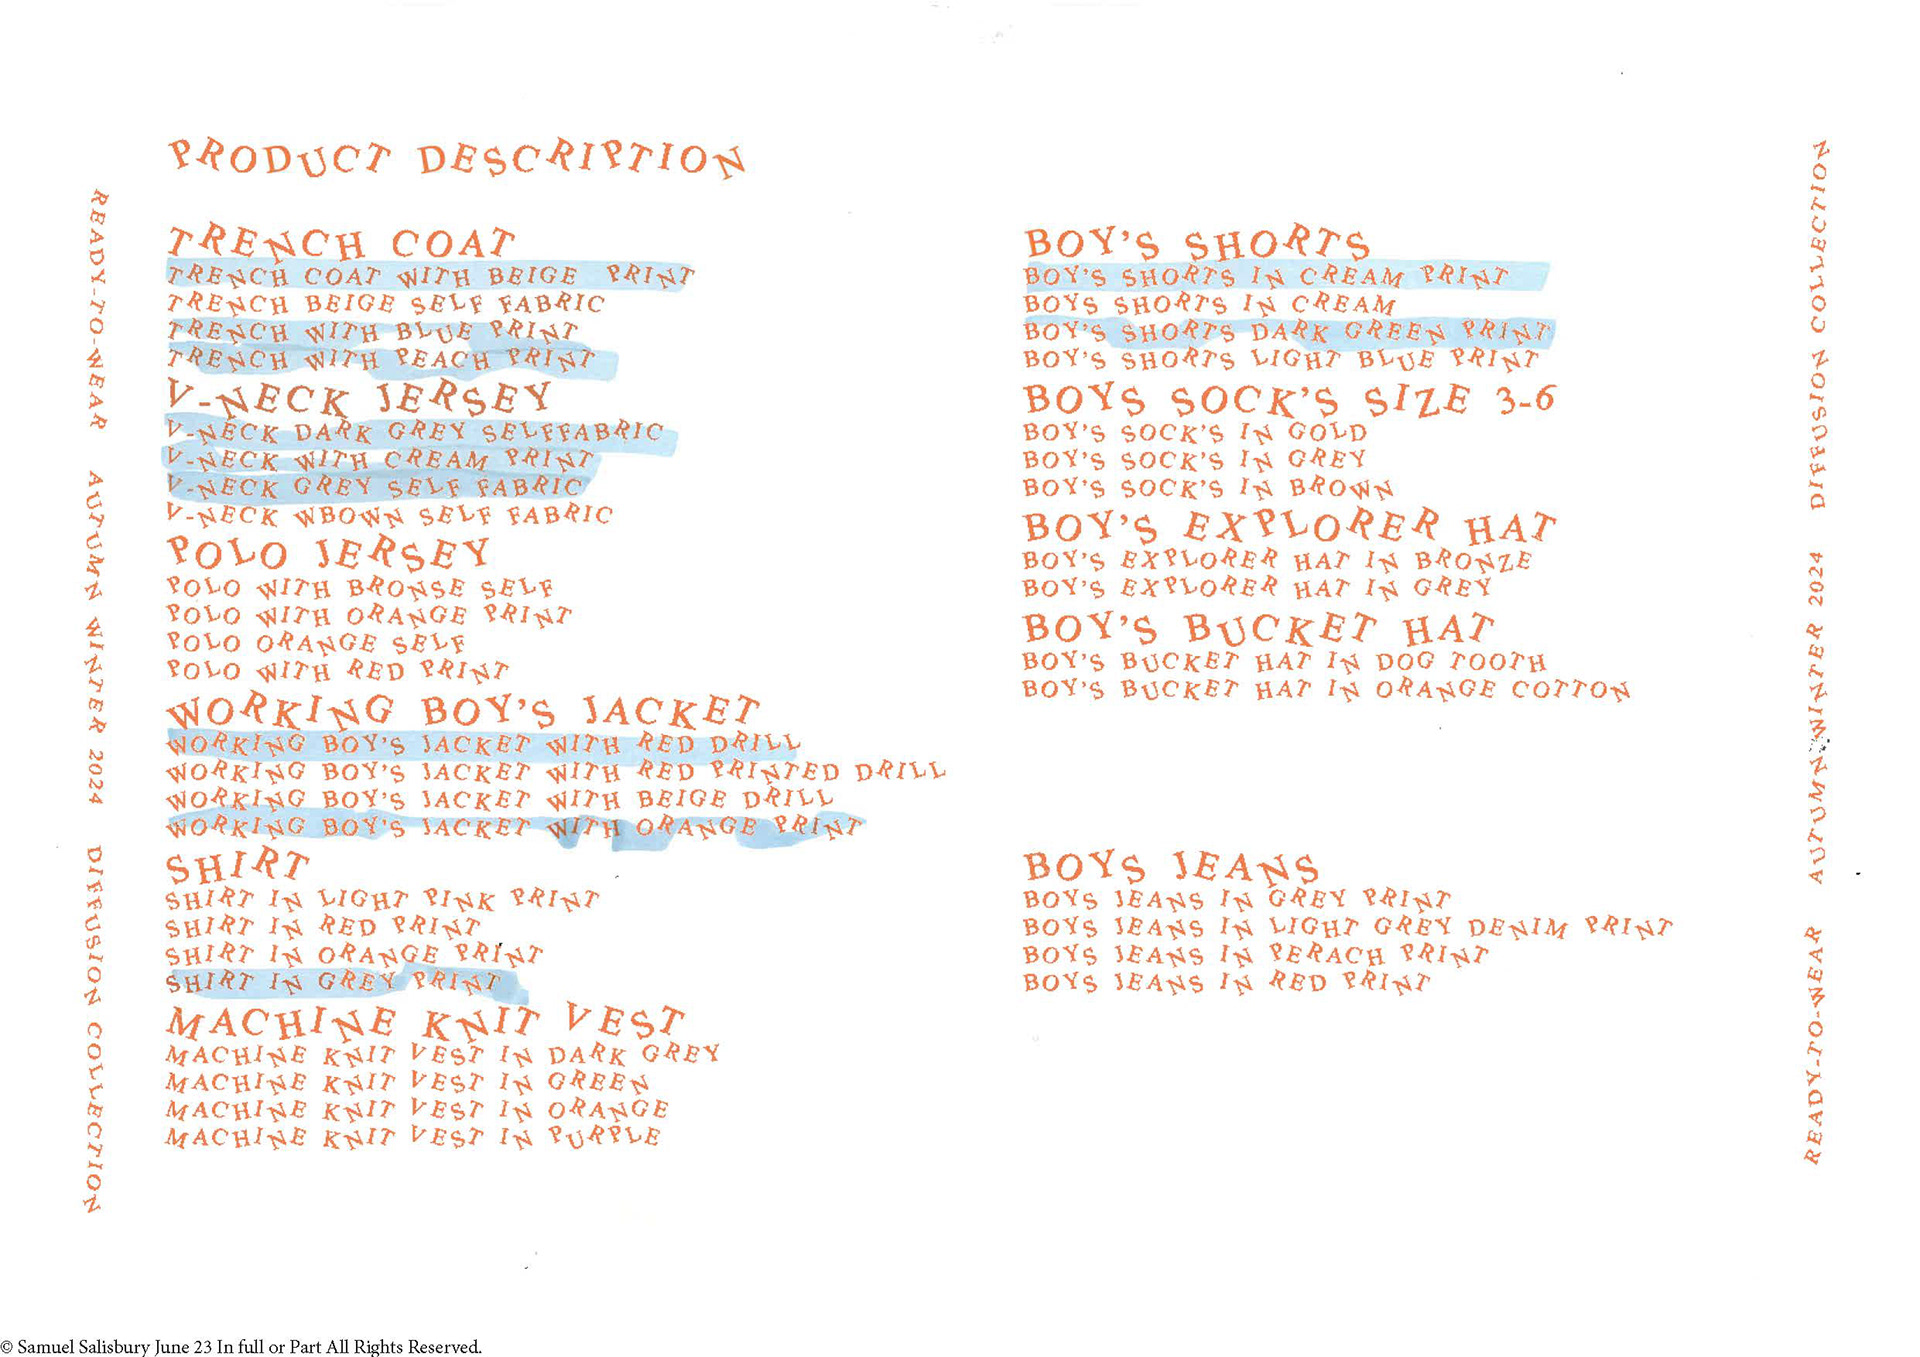 PRODUCT DESCRIPTION
READY-TO-WEAR AUTUMN WINTER 2024 DIFFUSION COLLECTION
TRENCH COAT
TRENCH COAT WITH BEIGE PRINT
TRENCH BEIGE SELF FABRIC
TRENCH WITH BLUE PRINT
TRENCH WITH PEACH PRINT
V-NECK JERSEY
V-NECK DARK GREY SELFFABRIC
V-NECK WITH CREAM PRINT
V-NECK GREY SELF FABRIC
V-NECK WBOWN SELF FABRIC
POLO JERSEY
POLO WITH BRONSE SELF
POLO WITH ORANGE PRINT
POLO ORANGE SELF
POLO WITH RED PRINT
WORKING BOY'S JACKET
WORKING BOY'S JACKET WITH RED DRILL
WORKING BOY'S JACKET WITH RED PRINTED DRILL
WORKING BOY'S JACKET WITH BEIGE DRILL
WORKING BOY'S JACKET WITH ORANGE PRINT
SHIRT
SHIRT IN LIGHT PINK PRINT
SHIRT IN RED PRINT
SHIRT IN ORANGE PRINT
SHIRT IN GREY PRINT
MACHINE KNIT VEST
MACHINE KNIT VEST IN DARK GREY
MACHINE KNIT VEST IN GREEN
MACHINE KNIT VEST IN ORANGE
MACHINE KNIT VEST IN PURPLE
BOY'S SHORTS
BOY'S SHORTS IN CREAM PRINT
BOYS SHORTS IN CREAM
BOY'S SHORTS DARK GREEN PRINT
BOY'S SHORTS LIGHT BLUE PRINT
BOYS SOCK'S SIZE 3-6
BOY'S SOCK'S IN GOLD
BOY'S SOCK'S IN GREY
BOY'S SOCK'S IN BROWN
BOY'S EXPLORER HAT
BOY'S EXPLORER HAT IN BRONZE
BOY'S EXPLORER HAT IN GREY
BOY'S BUCKET HAT
BOY'S BUCKET HAT IN DOG TOOTH
BOY'S BUCKET HAT IN ORANGE COTTON
BOYS JEANS
BOYS JEANS IN GREY PRINT
BOYS JEANS IN LIGHT GREY DENIM PRINT
BOYS JEANS IN PERACH PRINT
BOYS JEANS IN RED PRINT
READY-TO-WEAR AUTUMN WINTER 2024 DIFFUSION COLLECTION
© Samuel Salisbury June 23 In full or Part All Rights Reserved.